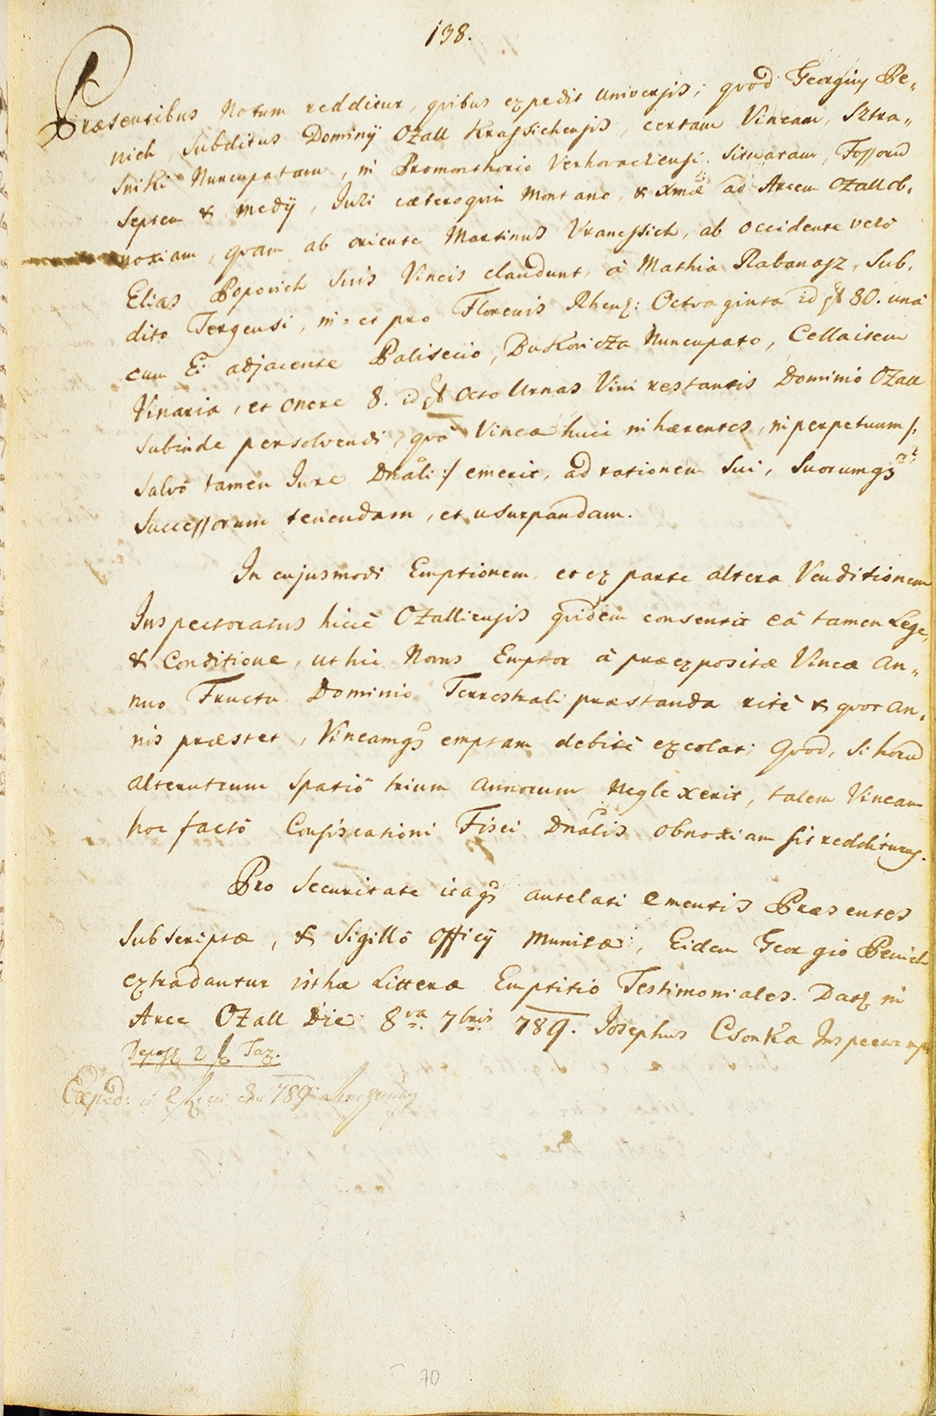 138.
Præsentibus Notum redditur, quibus expedit Universis; quòd Georgius Be„
nich, Subditus Dominij Ozall Krassichensis, certam Vineam, Sztra„
sniki Nuncupatam, in Promonthorio Verhovachensi situatam, Fossorũ
Septem & medÿ, Juri cæteroquin Montano, & Xmæ ad Arcem Ozall ob„
noxiam, quam ab oriente Martinus Vranessich, ab occidente verò
Elias Popovich Suis Vineis claudunt, à Mathia Rabanasz, Sub„
dito Tergensi, in et pro Florenis Rhen: Octvaginta id est 80. unà
cum Ei adjacente Palisecio, Dukovicza Nuncupato, Cella item
Vinaria, et onere 8. id est Octo Urnas Vini restantis Dominio Ozall
subinde persolvendi, quà Vineæ huic inhærentes, in perpetuum /:
salvô tamen Jure Dnali :/ emerit, ad rationem sui, suorumqз
Successorum tenendam, et usurpandam.
In cujusmodi Emptionem, et ex parte altera Venditionem
Inspectoratus hicce Ozalliensis quidem consensit eâ tamen Lege,
& Conditione, ut hic Novus Emptor à præexpositæ Vineæ An„
nuo Fructu Dominio Terrestrali præstanda ritè & quot an„
nis præstet, Vineamqз emptam debitè excolat; Quod, si horũ
alterutrum spatiô trium annorum neglexerit, talem Vineam
hoc factô Confiscationi Fisci Dnalis obnoxiam sit redditurus.
Pro Securitate itaqз antelati ementis Præsentes
subscriptæ, & Sigillô Officÿ munitæ, Eidem Georgio Benich
extradantur isthæ Litteræ Emptitio Testimoniales. Datæ in
Arce Ozall Die 8va 7bris 789. Josephus Csonka Inspector mp